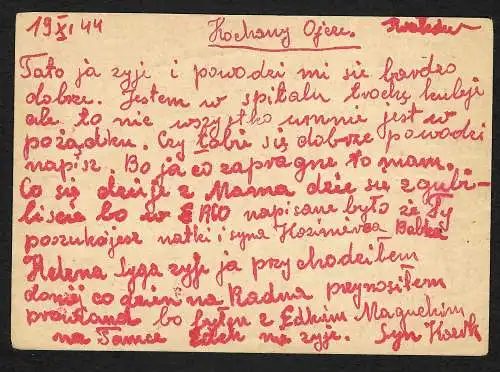 19 XI 44 Kochany Ojcze.
Tato ja zyje i powodzi mi sie bardzo
dobrze. Jestem w spitalu trochę kuleje
ale to nie wszystko umnie jest w
pożądku. Czy tobie się dobrze powodzi
napisz. Bo ja co zapragne to mam.
Co się dzieje z Mama dzie się zgubi-
liscie bo w napisane było że Ty
poszukójesz matki i syna Kazimierza Balka
Helena Syga zyje ja przychodziłem
do niej co dzien na Radna przynosiłem
bo byłem z Edkiem
na Tamce Edek nie zyje. Syn